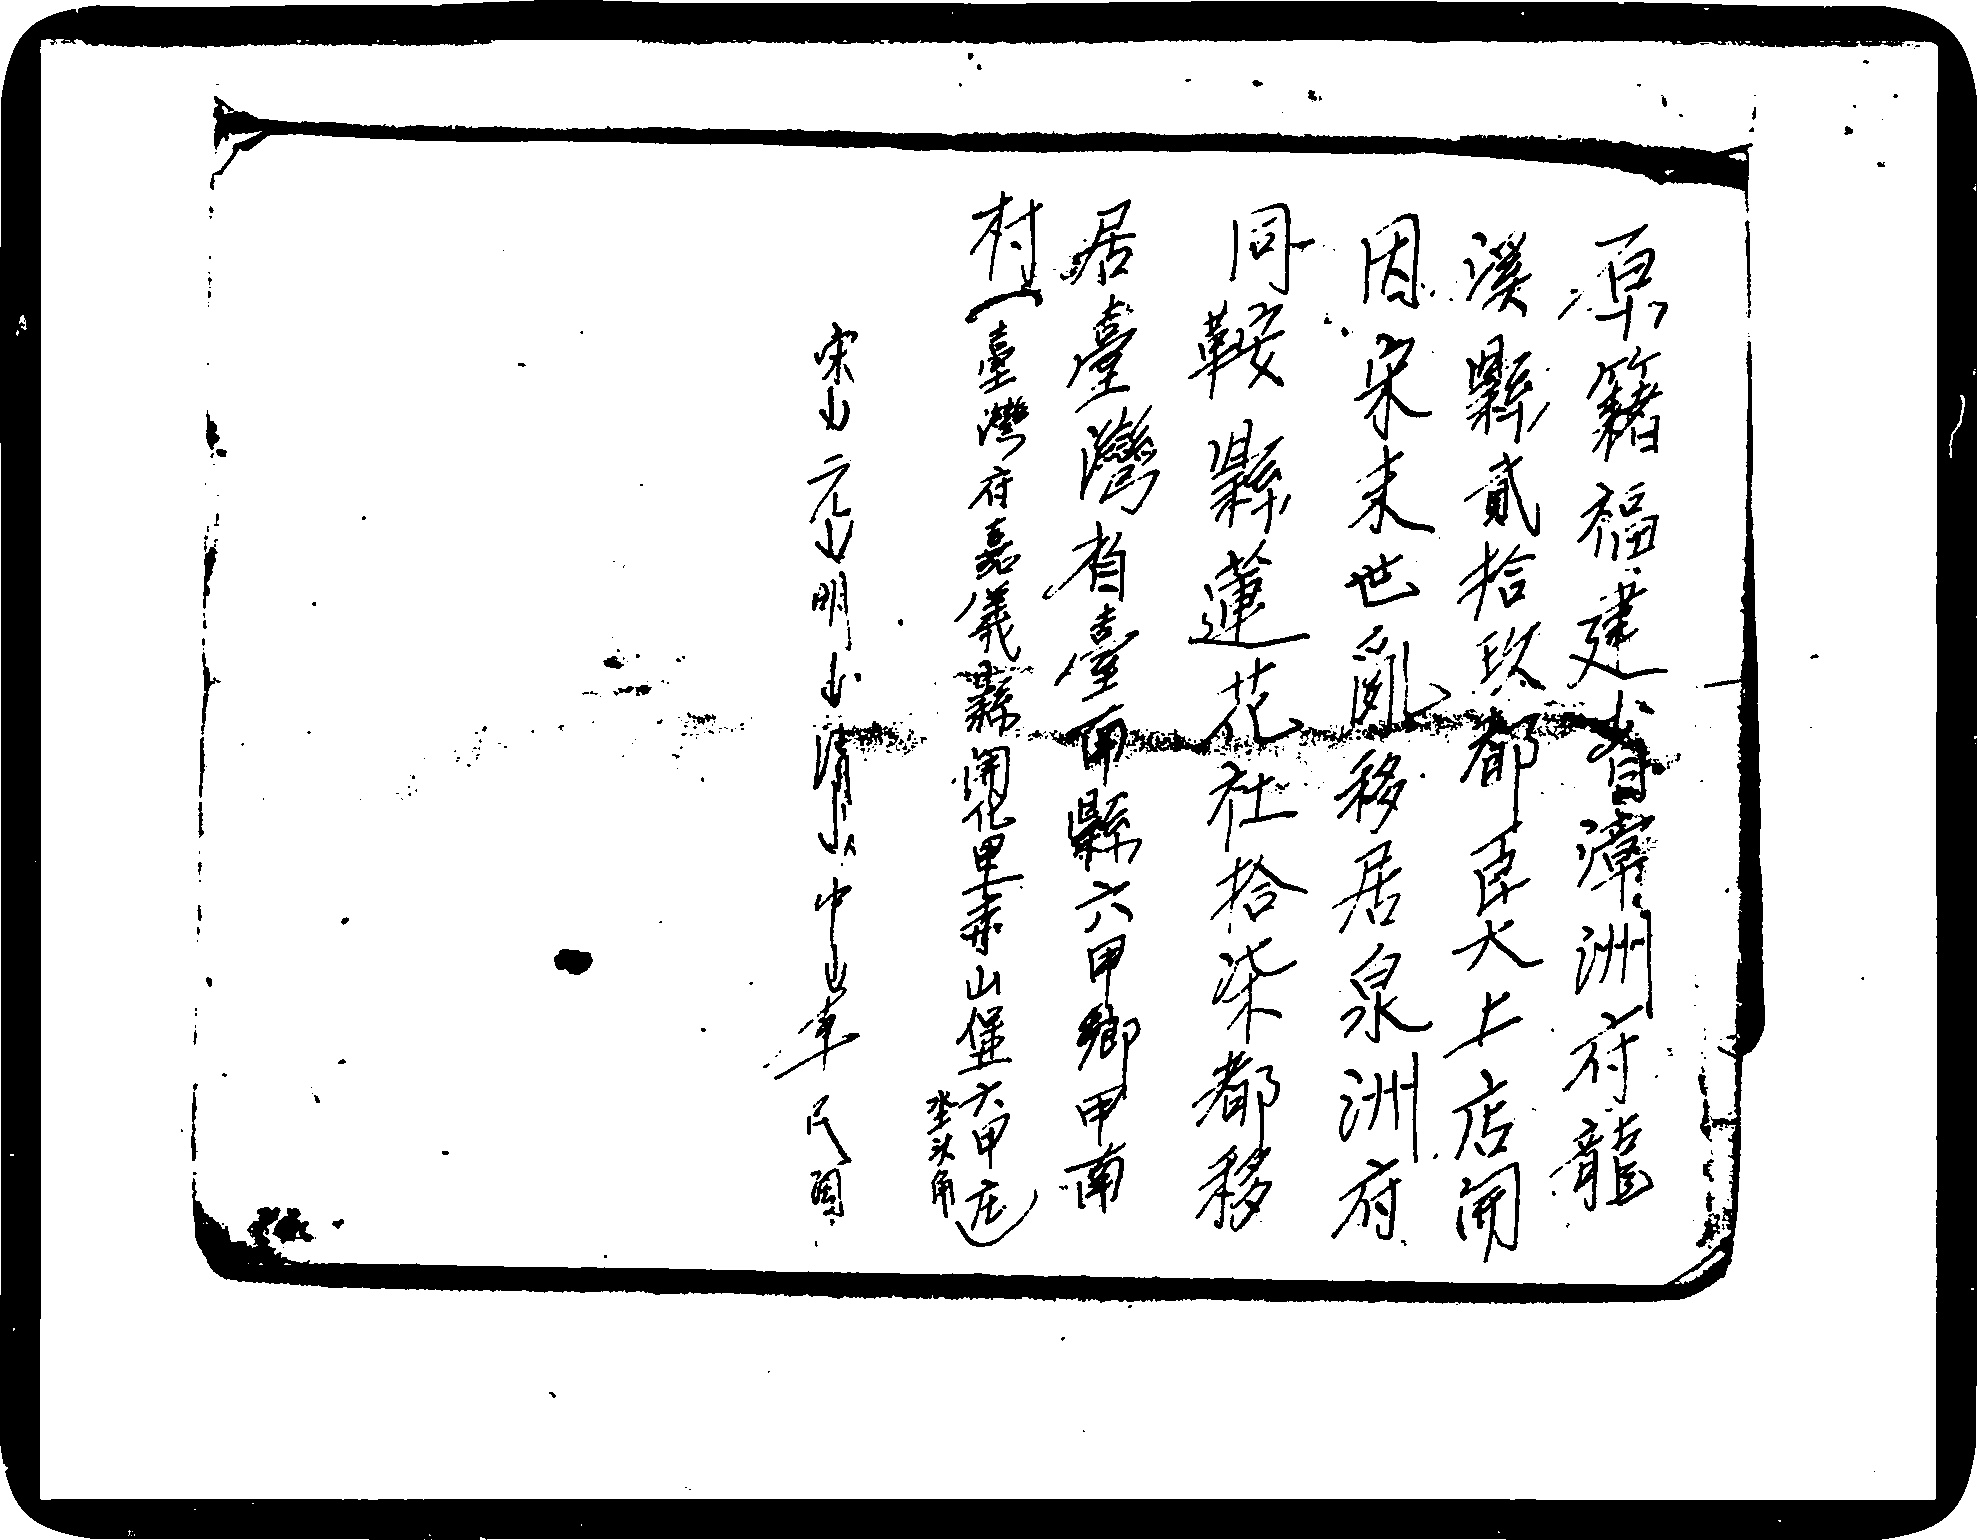 原籍福建省漳洲府龍
溪縣貳拾玖都臣大上店開
因宋末世亂移居泉洲府
同鞍縣蓮花社拾柒都移
居臺灣省臺南縣六甲鄉甲南
村(臺灣府嘉義縣開化里赤山堡六甲庄)
坐头角
宋 元 明 清 中 民國